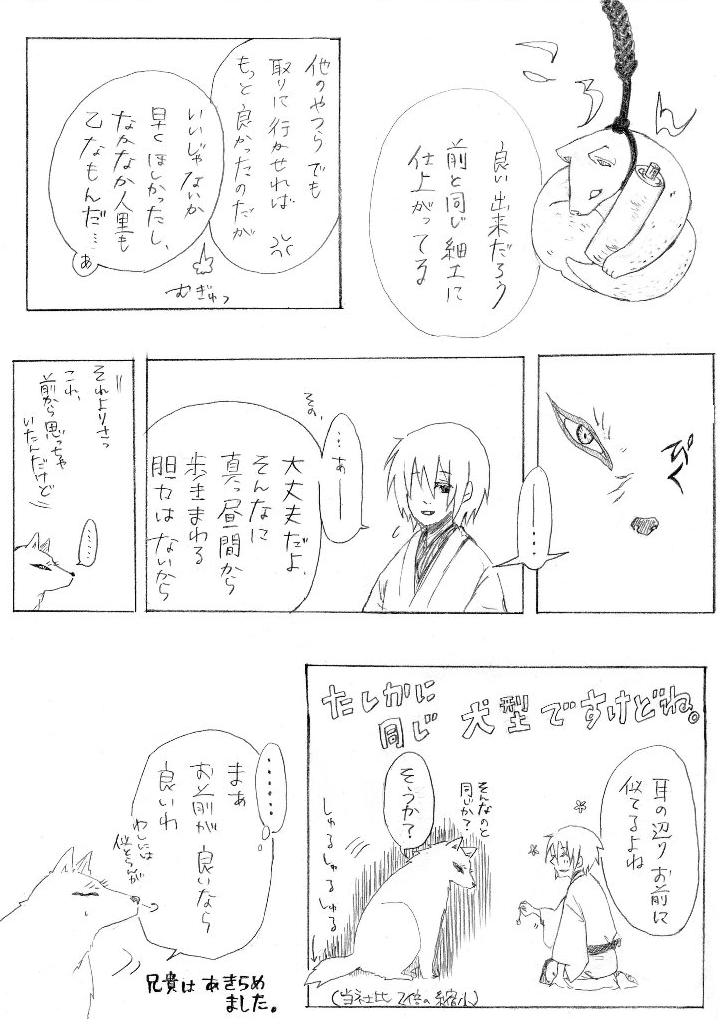 ころん
良い出来だろう
前と同じ細工に
仕上がってる
他のやつらでも
取りに行かせれば
もっと良かったのだが
いいじゃないか
早くほしかったし、
なかなか人里も
乙なもんだ…
あ
むぎゅっ
ぴく
…………
…あー
その、
大丈夫だよ、
そんなに
真っ昼間から
歩きまわる
胆力はないから
それよりさっ
これ、
前から思っちゃ
いたんだけど
……
耳の辺りお前に
似てるよね
たしかに
同じ 犬型ですけどね。
そんなのと
同じか？
そうか？
しゅるしゅるしゅる
(当社比 2倍の縮小)
……
まぁ
お前が良いなら
良いわ
わしには
似とらんが
兄貴はあきらめ
ました。